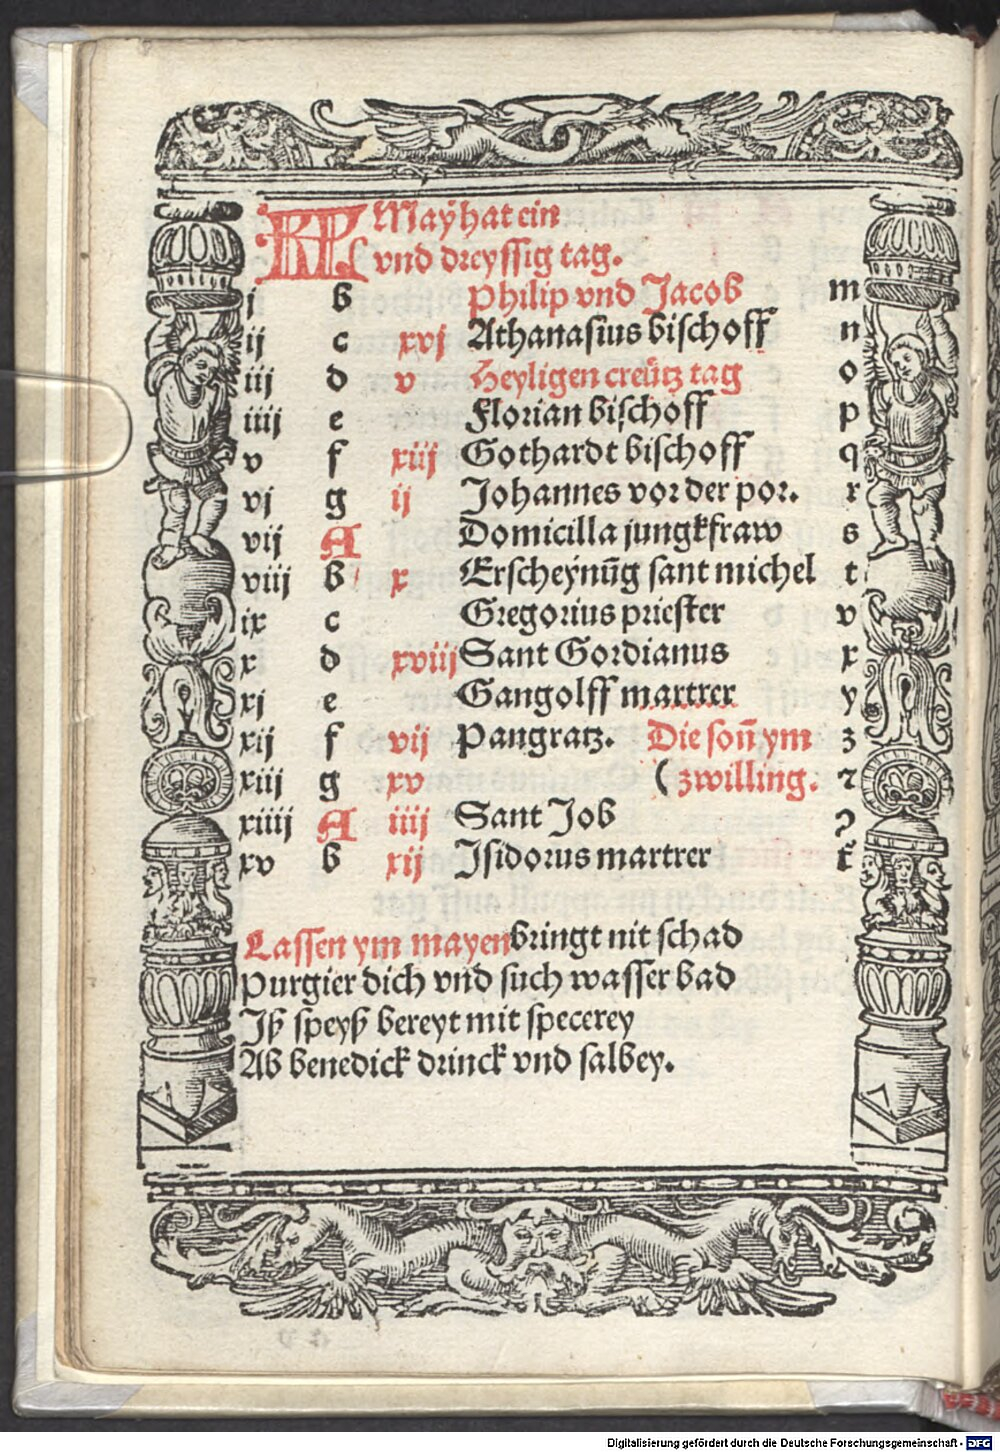 KL Maÿ hat ein
vnd dreyssig tag.
j b Philip vnd Jacob m
ij c xvj Athanasius bischoff n
iij d v Heyligen creütz tag o
iiij e Florian bischoff p
v f xiij Gothardt bischoff q
vj g ij Johannes vor der por. r
vij A Domicilla jungkfraw s
viij b x Erscheÿnūg sant michel t
ix c Gregorius priester v
x d xviij Sant Gordianus x
xj e Gangolff martrer y
xij f vij Pangratz. Die soñ ym z
xiij g xv (zwilling. ꝛ
xiiij A iiij Sant Job ꝯ
xv b xij Isidorus martrer
Lassen ym mayen bringt nit schad
Purgier dich vnd such wasser bad
Jß speyß bereyt mit specerey
Ab benedick drinck vnd salbey.
Digitalisierung gefördert durch die Deutsche Forschungsgemeinschaft - DFG